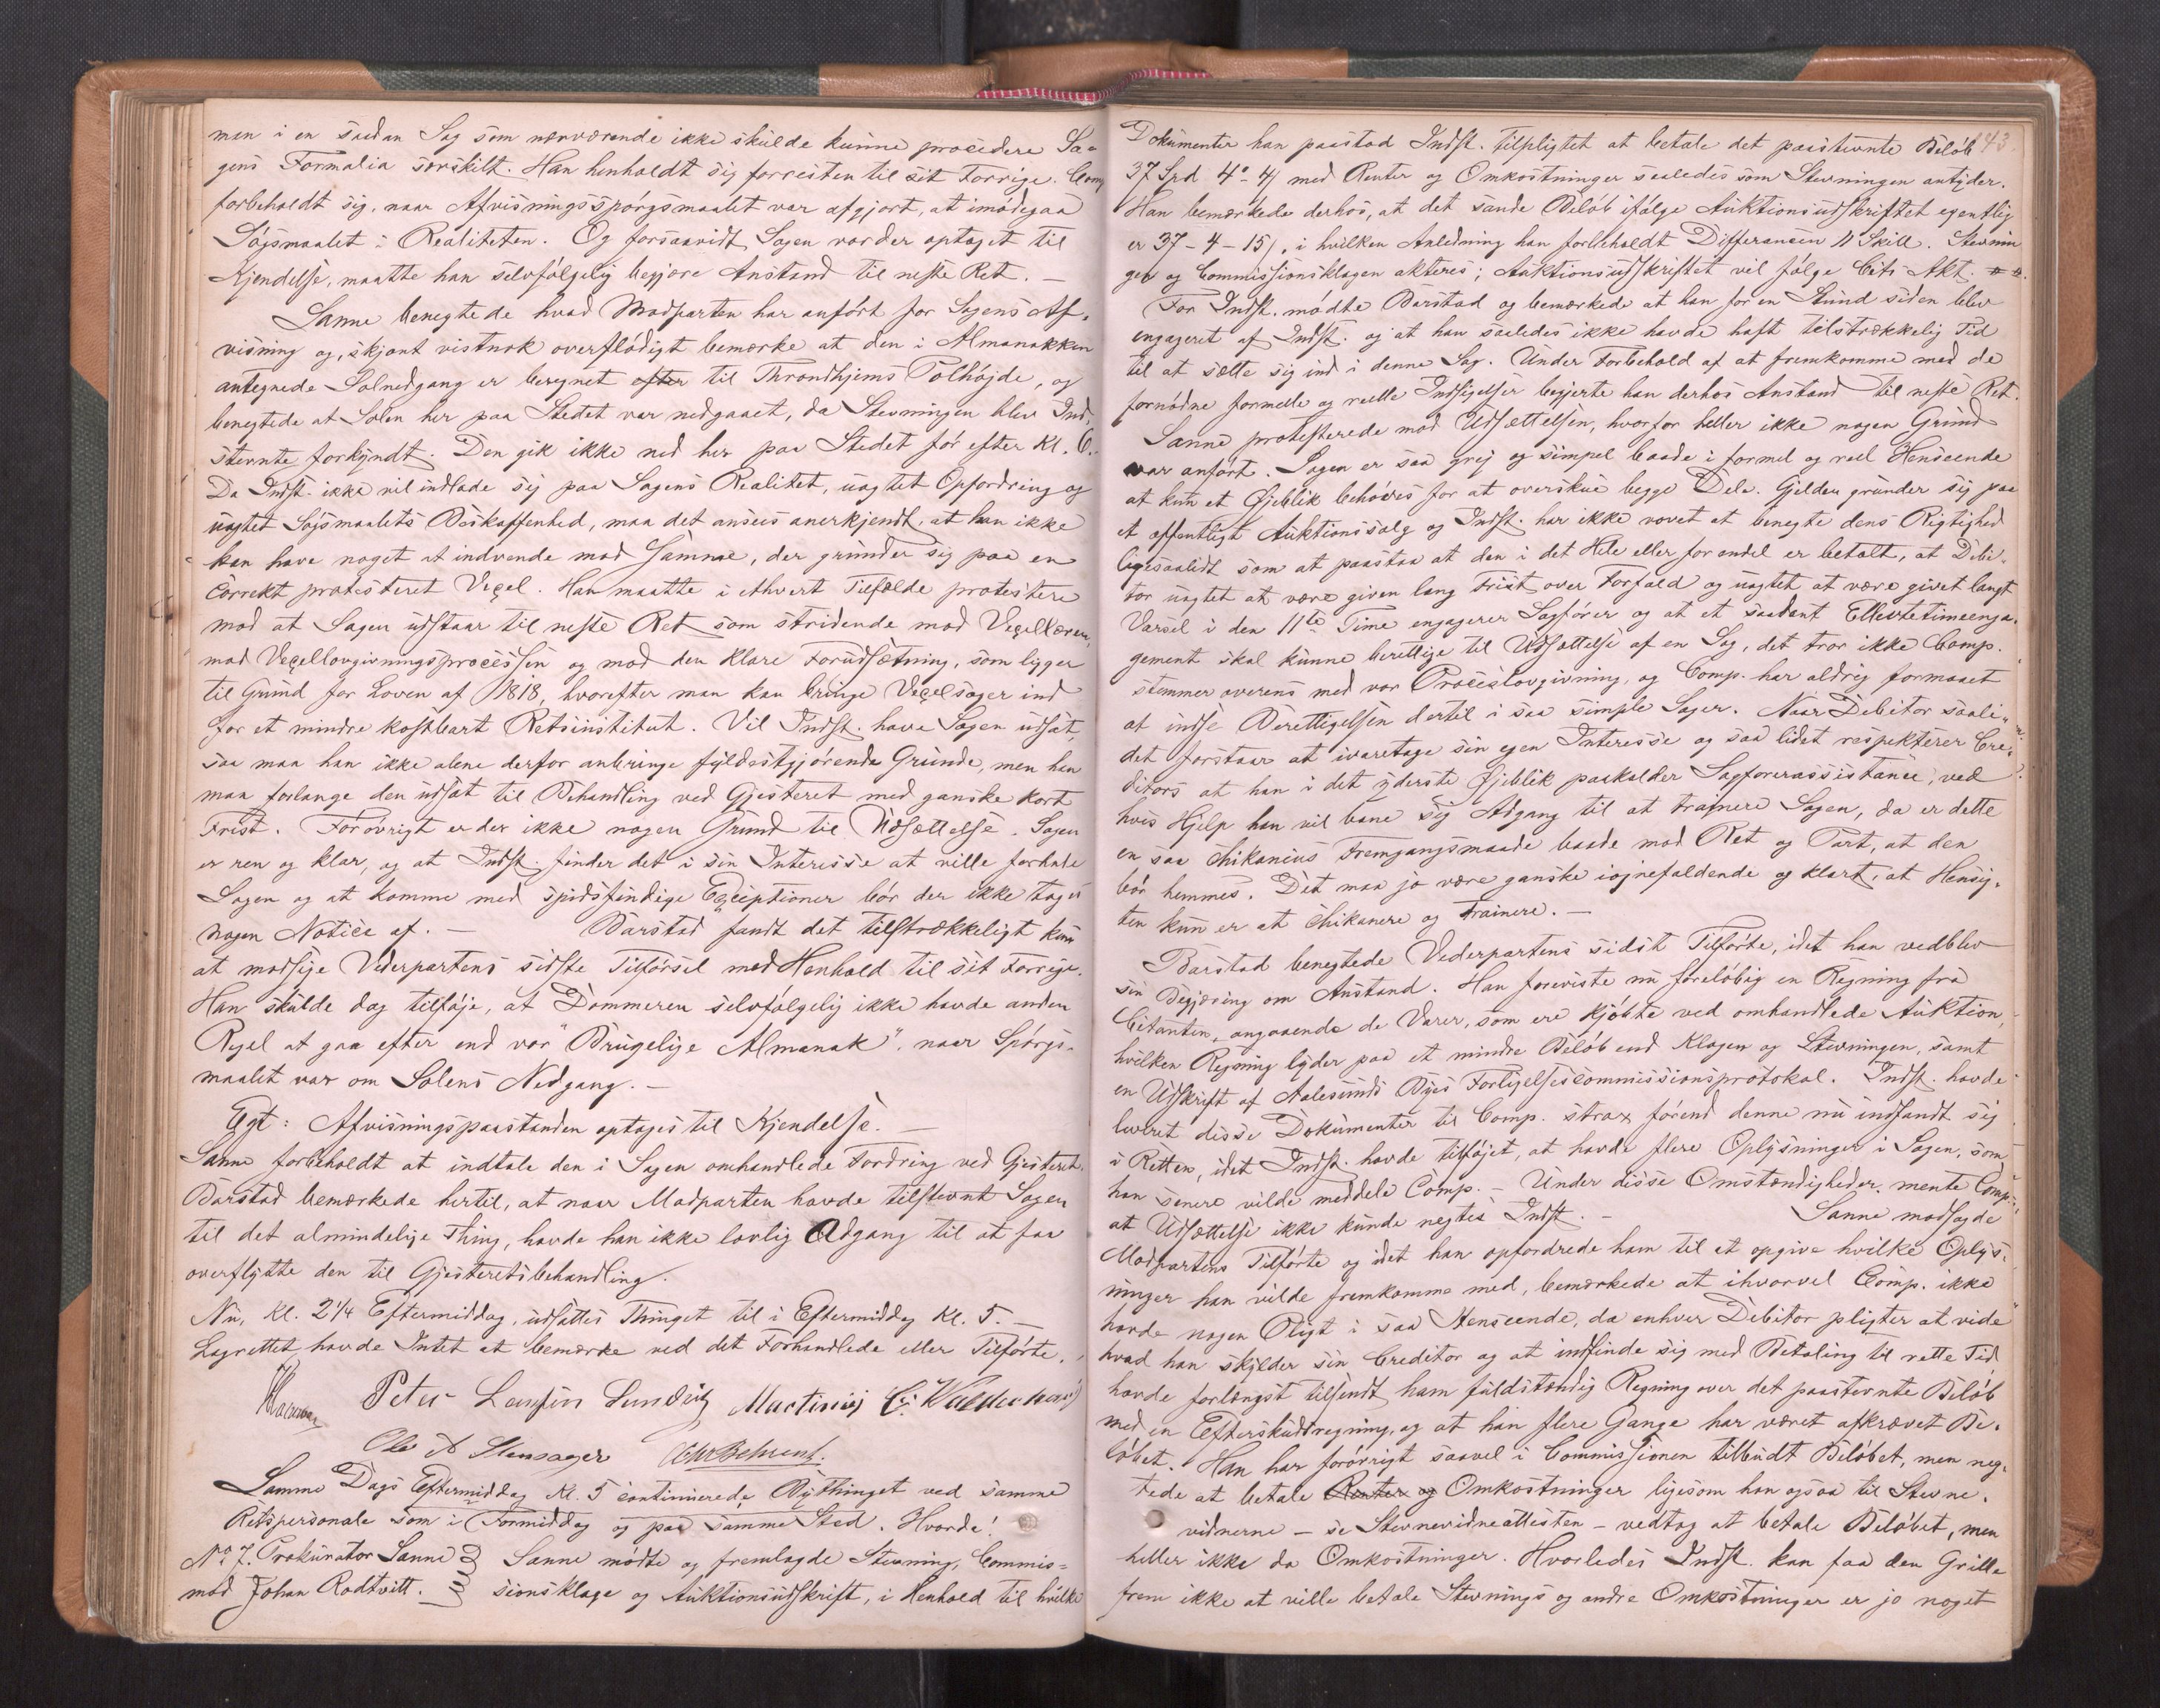 man i en saadan Sag som nærværende ikke skulde kunne procedere Sa-
gens Formalia særskilt. Han henholdt sig forresten til sit Forrige. Comp.
forbeholdt sig, naar Afvisningsspørgsmaalet var afgjort, at imødegaa
Søgsmaalet i Realiteten. Og forsaavidt Sagen vorder optaget til
Kjendelse, maatte han selvfølgelig begjære Anstand til neste Ret. —
Sanne benegtede hvad Modparten har anført for Sagens Af-
visning og, skjønt vistnok overflødigt bemærke at den i Almanakken
antegnede Solnedgang er beregnet efter til Throndhjems Polhøjde, og
benegtede at Solen her paa Stedet var nedgaaet, da Stevningen blev Ind-
stevnte forkyndt. Den gik ikke ned her paa Stedet før efter Kl. 6.
Da Indst. ikke vil indlade sig paa Sagens Realitet, uagtet Opfordring og
uagtet Søgsmaalets Beskaffenhed, maa det ansees anerkjendt, at han ikke
kan have noget at indvende mod Samme, der grunder sig paa en
correkt protesteret Vexel. Han maatte i ethvert Tilfælde protestere
mod at Sagen udstaar til neste Ret som stridende mod Vexelloven,
mod Vexellovgivningsprocessen og mod den klare Forudsætning, som ligger
til Grund for Loven af 1818, hvorefter man kan bringe Vexelsager ind
for et mindre kostbart Retsinstitut. Vil Indst. have Sagen udsat,
saa maa han ikke alene derfor anbringe fyldestgjørende Grunde, men han
maa forlange den udsat til Behandling ved Gjesteret med ganske kort
Frist. Forøvrigt er der ikke nogen Grund til Udsættelse. Sagen
er ren og klar, og at Indst. finder det i sin Interesse at ville forhale
Sagen og at komme med spidsfindige Exceptioner bør der ikke tages
nogen Notice af. — Barstad fandt det tilstrækkeligt kun
at modsige Vederpartens sidste Tilførsel med Henhold til sit Forrige.
Han skulde dog tilføje, at Dommeren selvfølgelig ikke havde anden
Regel at gaa efter end vor "Brugelige Almanak", naar Spørgs-
maalet var om Solens Nedgang. —
Egt: Afvisningspaastanden optages til Kjendelse. —
Sanne forbeholdt at indtale den i Sagen omhandlede Fordring ved Gjesteret.
Barstad bemærkede hertil, at naar Modparten havde tilstevnt Sagen
til det almindelige Thing, havde han ikke lovlig Adgang til at faa
overflytte den til Gjesteretsbehandling.
Nu, Kl. 2¼ Eftermiddag, udsattes Thinget til i Eftermiddag Kl. 5. —
Lagrettet havde Intet at bemærke ved det Forhandlede eller Tilførte.
Peter Martinus
Ole A Stensager Behrent.
Samme Dags Eftermiddag Kl. 5 continuerede Bythinget ved samme
Retspersonale som i Formiddag og paa samme Sted. Hvorda!
No 7. Prokurator Sanne Sanne mødte og fremlagde Stevning, Commis-
mod Johan Rodtvitt. sionsklage og Auktionsudskrift, i Henhold til hvilke
143.
Dokumenter han paastod Indst. tilpligtet at betale det paastevnte Beløb
37 Spd 4 o 4 med Renter og Omkostninger saaledes som Stevningen antyder.
Han bemærkede derhos, at det sande Beløb ifølge Auktionsudskriftet egentlig
er 37 – 4 – 15, i hvilken Anledning han forbeholdt Differansen 11 Skill. Stevnin
gen og Commissionsklagen akteres; Auktionsudskriftet vil følge Cits Akt.
For Indst. mødte Barstad og bemærkede at han for en Stund siden blev
engageret af Indst. og at han saaledes ikke havde haft tilstrækkelig Tid
til at sætte sig ind i denne Sag. Under Forbehold af at fremkomme med de
fornødne formelle og reelle Indsigelser begjerte han derhos Anstand til neste Ret.
Sanne protesterede mod Udsættelsen, hvorfor heller ikke nogen Grund
var anført. Sagen er saa grej og simpel baade i formel og reel Henseende
at kun et Øjeblik behøves for at overskue begge Dele. Gjelden grunder sig paa
et offentligt Auktionssalg og Indst. har ikke vovet at benegte dens Rigtighed
ligesaalidt som at paastaa at den i det Hele eller for endel er betalt, at Debi-
tor uagtet at være given lang Frist over Forfald og uagtet at være givet langt
Varsel i den 11te Time engagerer Sagfører og at et saadant Ellevtetimeenga-
gement skal kunne berettige til Udsættelse af en Sag, det tror ikke Comp.
stemmer overens med vor Proceslovgivning, og Comp. har aldrig formaaet
at indse Berettigelsen dertil i saa simple Sager. Naar Debitor saali-
det forstaar at ivaretage sin egen Interesse og saa lidet respekterer Cre-
ditors at han i det yderste Øjeblik paakalder Sagførerassistance, ved
hvis Hjelp han vil bane sig Adgang til at trainere Sagen, da er dette
en saa chikanius Fremgangsmaade baade mod Ret og Part, at den
bør hemmes. Det maa jo være ganske iøjnefaldende og klart, at Hensig-
ten kun er at chikanere og trainere. —
Barstad benegtede Vederpartens sidst Tilførte, idet han vedblev
sin Begjæring om Anstand. Han foreviste nu foreløbig en Regning fra
Citanten, angaaende de Varer, som ere kjøbte ved omhandlede Auktion,
hvilken Regning lyder paa et mindre Beløb end Klagen og Stevningen, samt
en Udskrift af Aalesunds Byes Forligelsescommissionsprotokol. Indst. havde
leveret disse Dokumenter til Comp. strax førend denne nu indfandt sig
i Retten, idet Indst. havde tilføjet, at havde flere Oplysninger i Sagen, som
han senere vilde meddele Comp. – Under disse Omstændigheder mente Comp.,
at Udsættelse ikke kunde negtes Indst. – Sanne modsagde
Modpartens Tilførte og idet han opfordrede ham til at opgive hvilke Oplys-
ninger han vilde fremkomme med, bemærkede at ihvorvel Comp. ikke
havde nogen Pligt i saa Henseende, da enhver Debitor pligter at vide
hvad han skylder sin Creditor og at indfinde sig med Betaling til rette Tid
havde forlængst tilsendt ham fuldstændig Regning over det paastevnte Beløb
med en Efterskudsregning, og at han flere Gange har været afkrævet Be-
løbet. Han har forøvrigt saavel i Commissionen tilbudt Beløbet, men neg-
tede at betale Renter og Omkostninger ligesom han ogsaa til Stevne-
vidnerne – se Stevnevidneattesten – vedtog at betale Beløbet, men
heller ikke da Omkostninger. Hvorledes Indst. kan faa den Grille
frem ikke at ville betale Stevnings og andre Omkostninger er jo noget